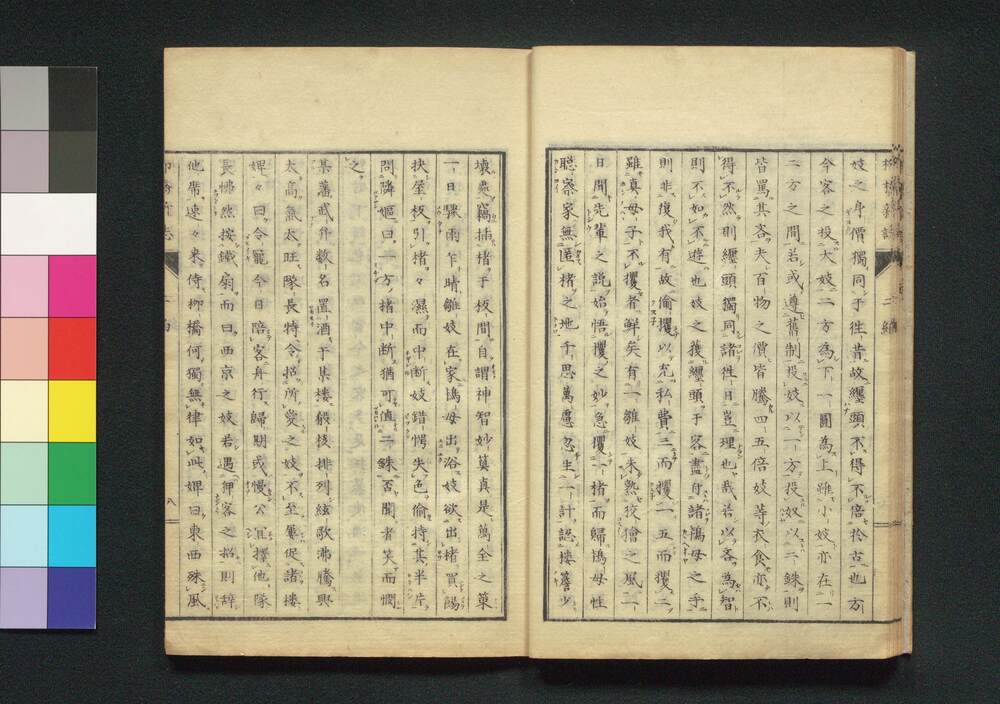 妓之身價獨同于徃昔故纏頭不得不倍於古也方
今客之投大妓二方為下一圓為上雖小妓亦在一
二方之間若或遵舊制投妓以一方投奴以二銖則
皆罵其吝夫百物之價皆騰四五倍妓等衣食亦不
得不然則纏頭獨同諸徃日豈理也哉若以吝為智
則不如不遊也妓之獲纏頭于客盡付諸鴇母之手
則非復我有故偷攫以充私費三而攫一五而攫二
雖真母子不攫者鮮矣有一雛妓未熟狡獪之風一
日聞先輩之說始悟攫之妙急攫一楮而歸鴇母性
聰察家無匿楮之地千思萬慮忽生一計認樓簷少
壞處竊插楮于板間自謂神智妙算真是萬全之策
一日驟雨乍晴雛妓在家鴇母出浴妓欲出楮買陽
抉屋板引楮々濕而中斷妓錯愕失色偷持其半片
問隣嫗曰一方楮中断猶可值二銖否聞者笑而憫
之
某藩武弁数名置酒于某樓嚴後排列絃歌沸騰興
太高氣太旺隊長特令招所愛之妓不至屢促諸樓
婢々曰令寵今日陪客舟行歸期或慢公冝擇他隊
長怫然按鐵扇而曰西京之妓若遇押客之招則辞
他席速々来侍柳橋何獨無律如此婢曰東西殊風